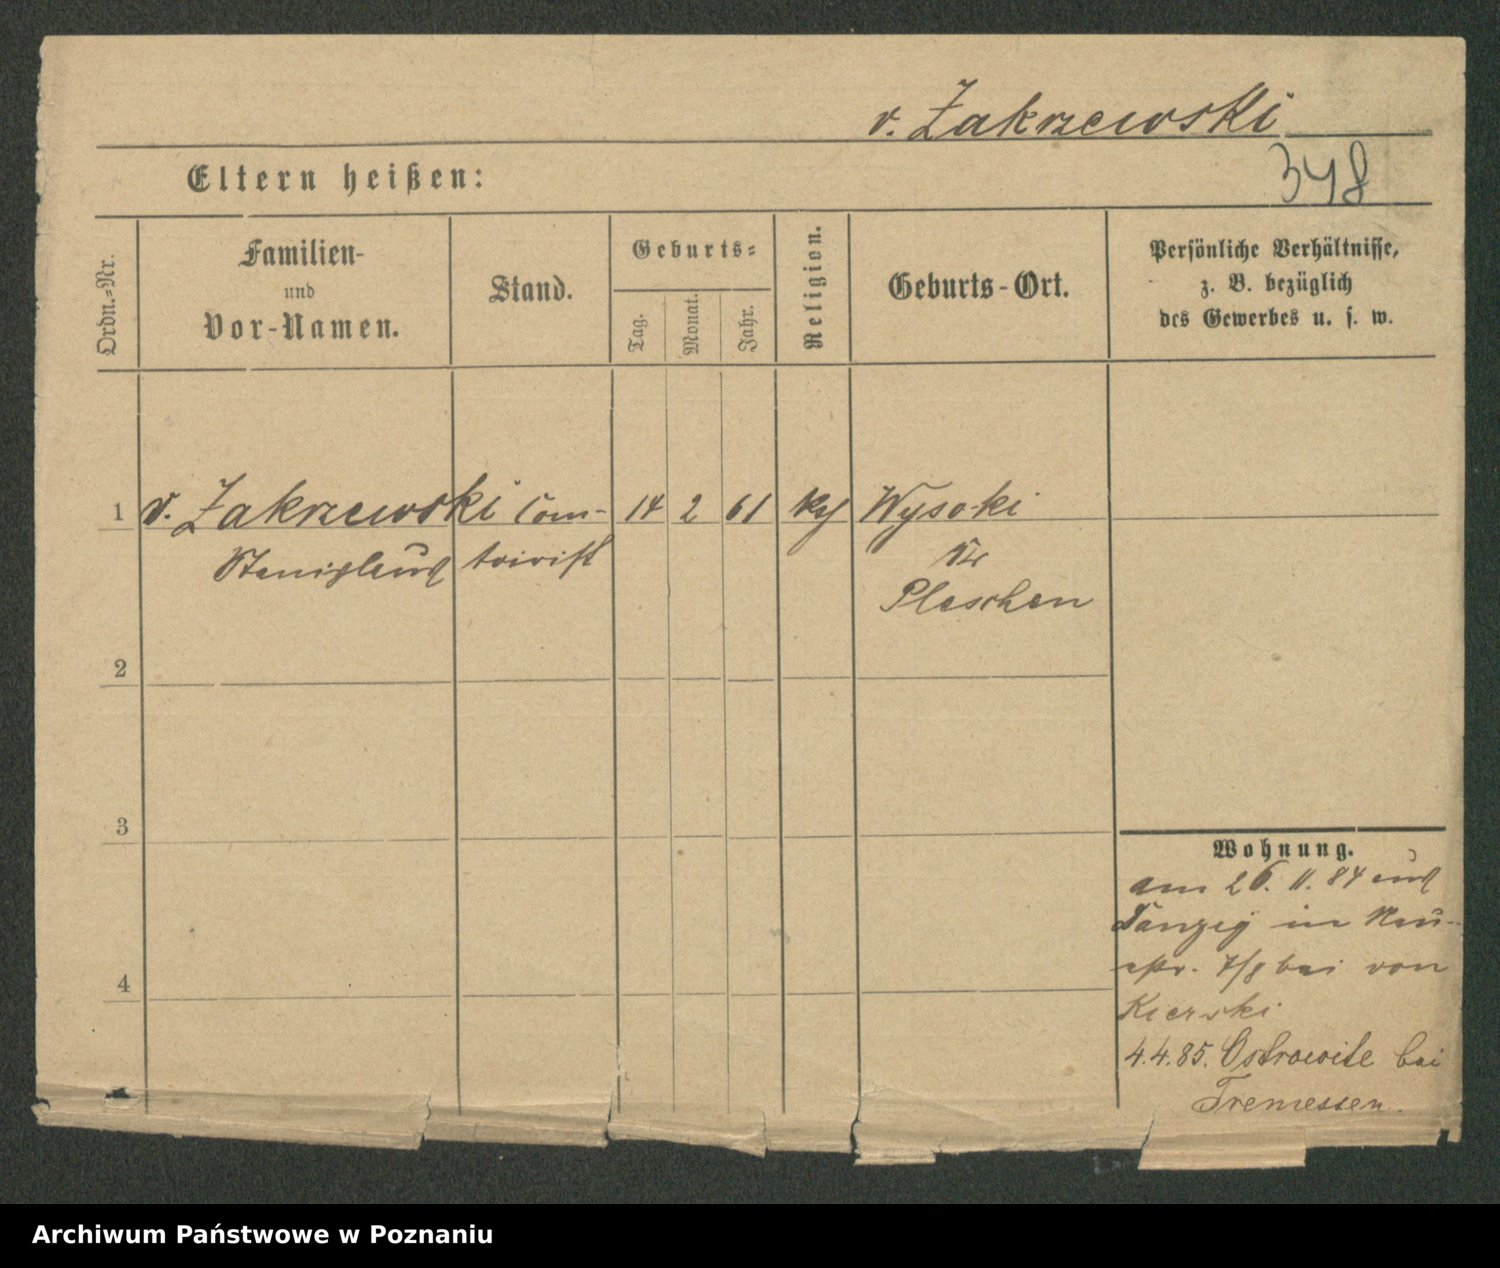 v. Zakrzewski
348
Eltern heißen:
Ordn.=Nr.
Familien-
und
Vor-Namen.
Stand.
Geburts=
Tag.
Monat.
Jahr.
Religion.
Geburts-Ort.
Persönliche Verhältnisse,
z. B. bezüglich
des Gewerbes u. s. w.
1 v. Zakrzewski Com- 14 2 61 Wysoki
Stanislaus
Kr
Pleschen
2
3
4
Wohnung.
am 26. 11. 84 aus
Danzig in Neu-
str. 7/8 bei von
Kierski
4.4.85. Ostrowite bei
Tremessen.
Archiwum Państwowe w Poznaniu